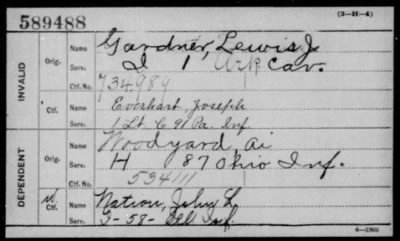 589488
(3-H-4)
INVALID
Orig.
Name Gardner, Lewis J.
Serv. I 1 Ark Cav.
Ctf. No. 734,984
Ctf.
Name Everhart, Joseph
Serv. 1 Lt. C 91 Pa. Inf.
DEPENDENT
Orig.
Name Woodyard, Ai
Serv. H 87 Ohio Inf.
Ctf. No. 534111
W. Ctf.
Name Nation, John L.
Serv. 3-58- Ill Inf.